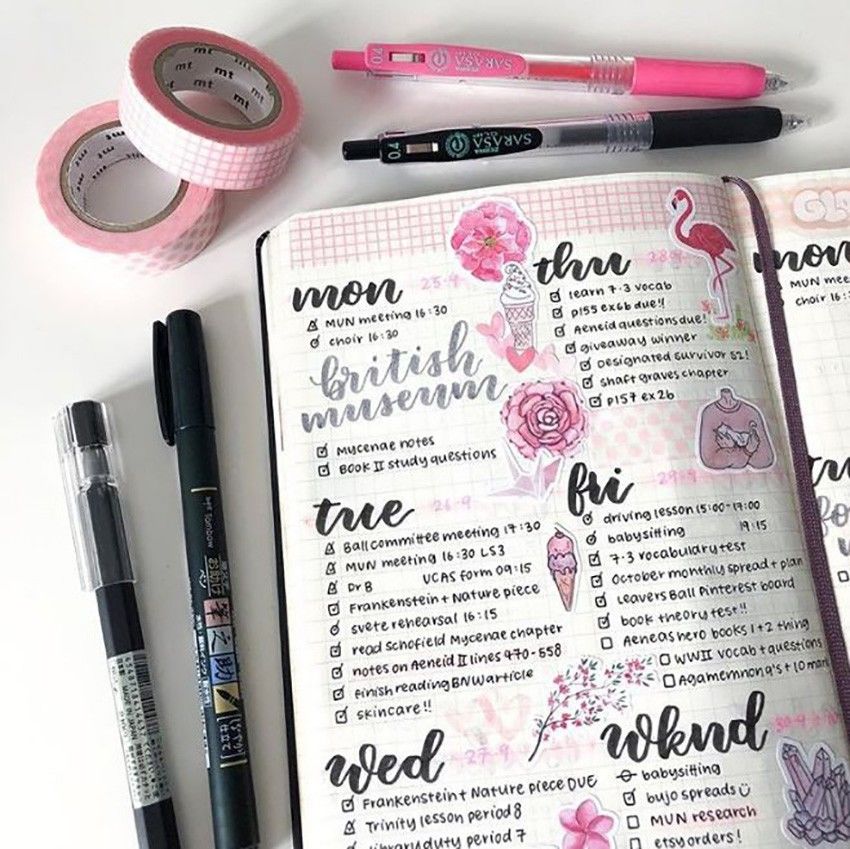 mt
mt
mt
0.4 SARASA
0.4 ZEBRA SARASA
mon 25·9
MUN meeting 16:30
choir 16:30
british
museum
Mycenae notes
BOOK II study questions
tue 26·9
Ball committee meeting 17:30
MUN meeting 16:30 LS3
Dr B UCAS form 09:15
Frankenstein + Nature piece
svete rehearsal 16:15
read Schofield Mycenae chapter
notes on Aeneid II lines 470-558
finish reading BNW article
skincare!!
wed 27·9
Frankenstein + Nature piece DUE
Trinity lesson period 8
library duty period 7
thu 28·9
learn 7·3 vocab
p155 ex6b due!!
Aeneid questions due!
giveaway winner
Designated Survivor S2!
shaft graves chapter
p157 ex2b
fri 29·9
driving lesson 15:00-17:00
babysitting 19:15
7·3 vocabulary test
October monthly spread + plan
Leavers Ball Pinterest board
book theory test!!
Aeneas hero books 1+2 thing
WWII vocab + questions
Agamemnon q's + 10 mark
wknd 30·9
babysitting
bujo spreads
MUN research
etsy orders!
mon
MUN mee
choir 16:
tu
TOMBOW
MADE IN JAPAN